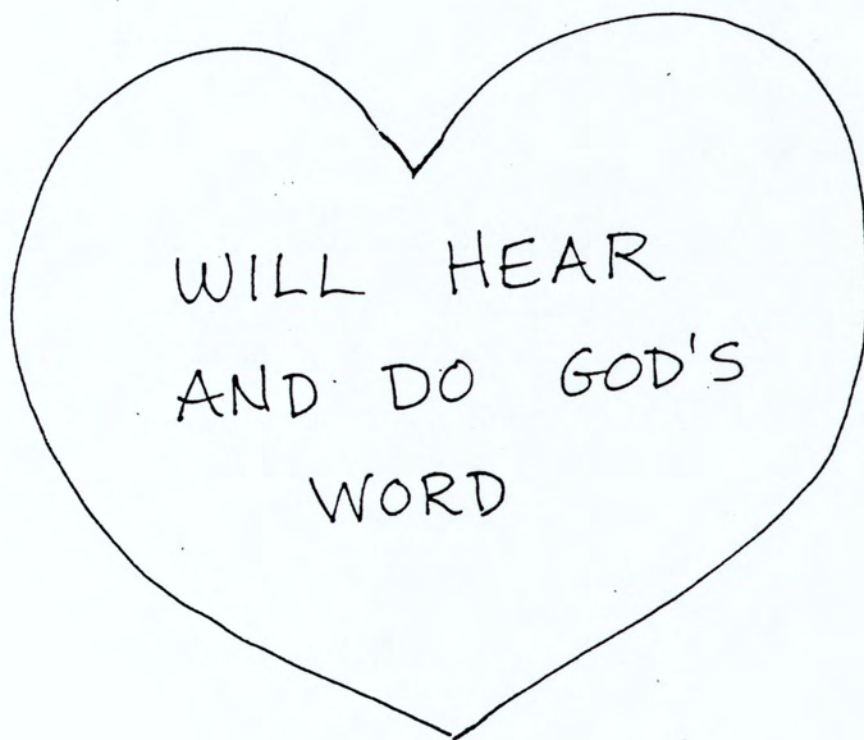 WILL HEAR
AND DO GOD'S
WORD